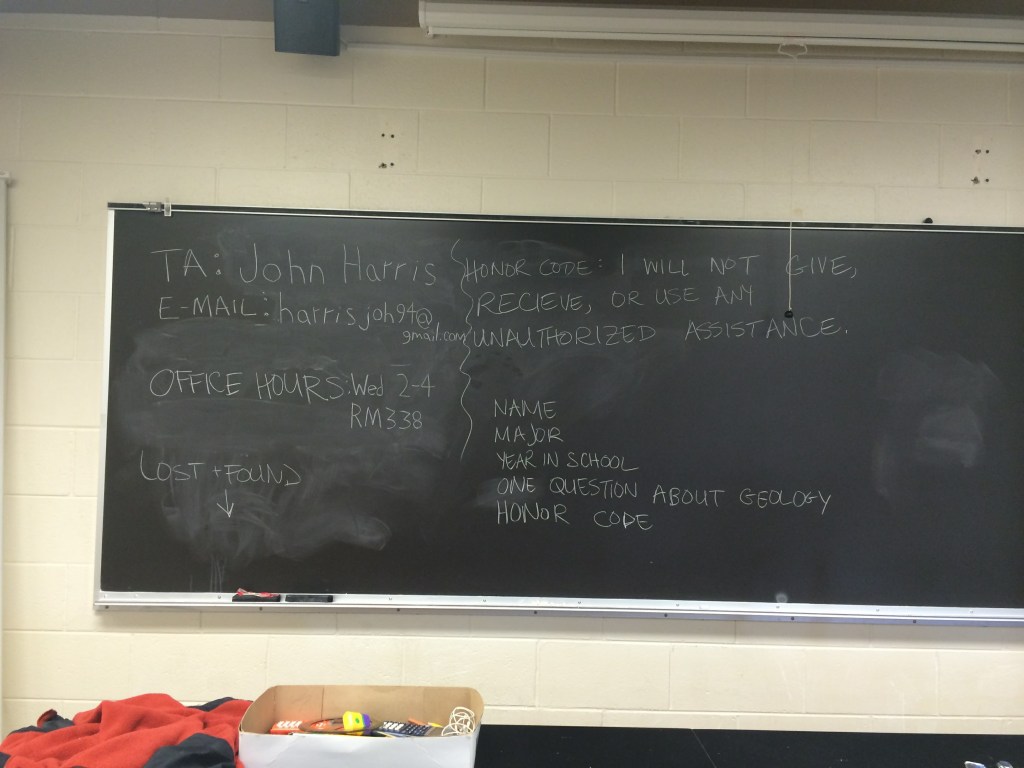 TA: John Harris
E-MAIL: harrisjoh94@
gmail.com
OFFICE HOURS: Wed 2-4
RM338
LOST + FOUND
↓
HONOR CODE: I WILL NOT GIVE,
RECIEVE, OR USE ANY
UNAUTHORIZED ASSISTANCE.
NAME
MAJOR
YEAR IN SCHOOL
ONE QUESTION ABOUT GEOLOGY
HONOR CODE